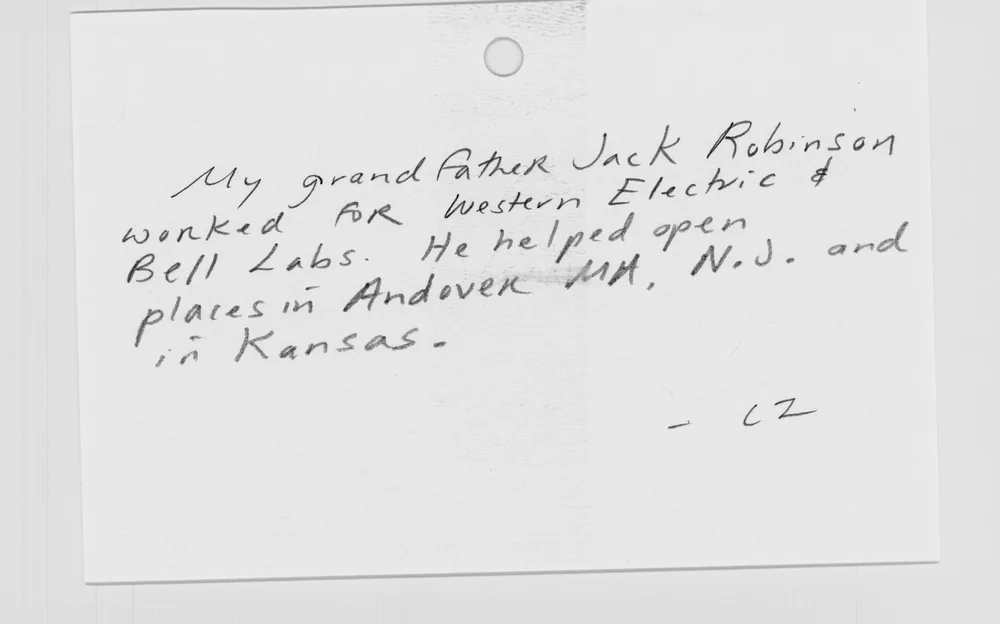 My grandfather Jack Robinson
worked for Western Electric &
Bell Labs. He helped open
places in Andover MA, N.J. and
in Kansas.
- CZ